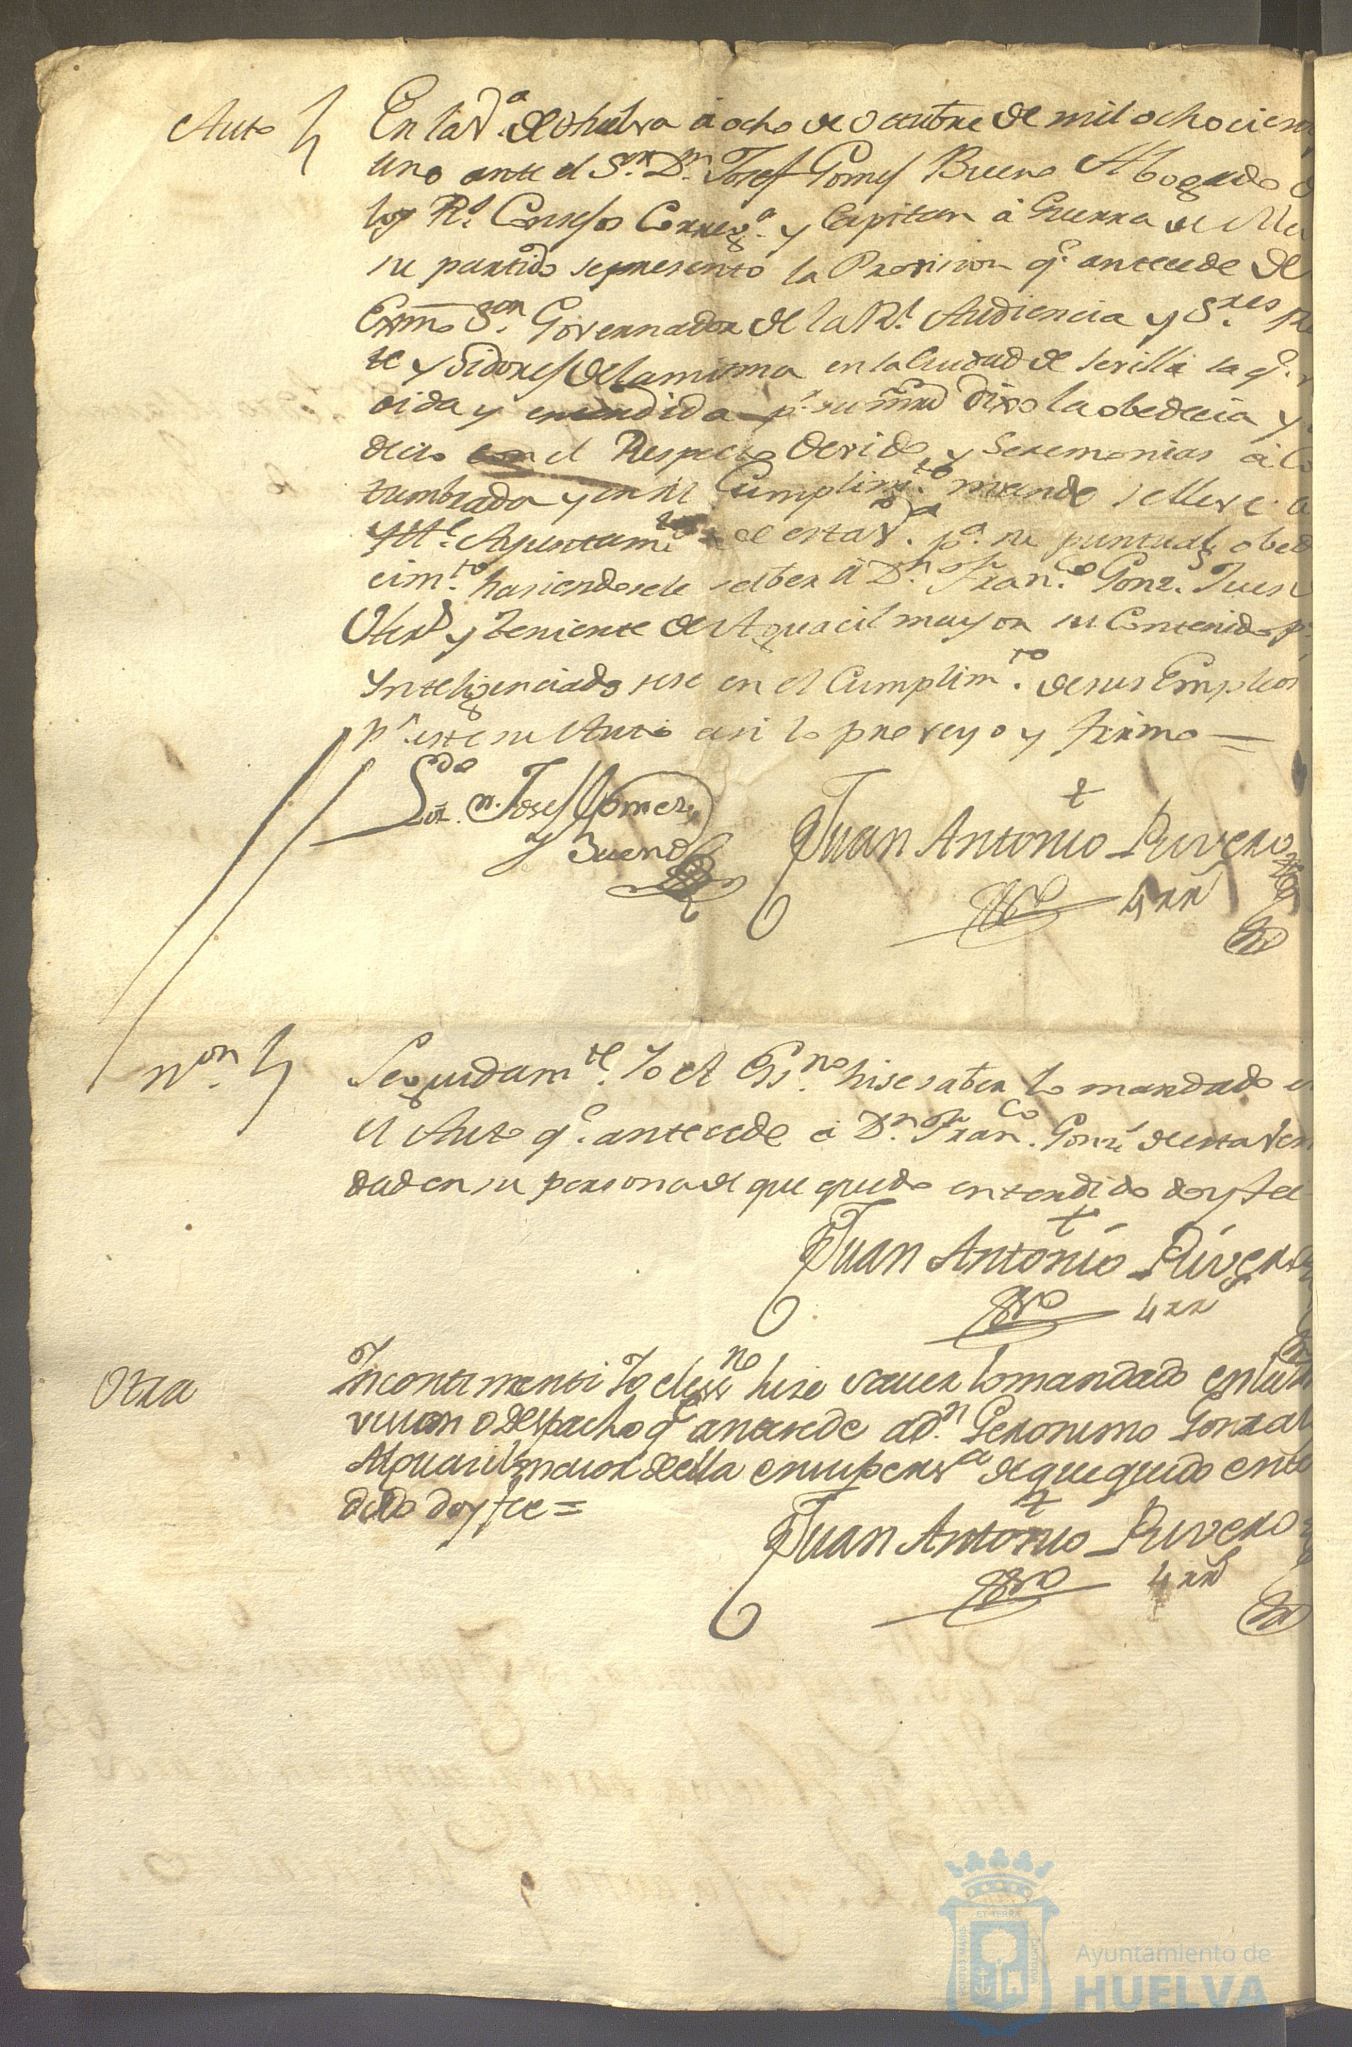 Auto En la V.ª de Huelva à ocho de Octubre de mil ochocien
uno ante el S.or D.n Josef Gomes Bueno Abogado
los R.s Consejos Correg.r y Capitan à Guerra de
su partido se presentó la Provision q.e antecede de
Exmo S.or Governador de la R.l Audiencia y S.res
te y Oidores de la misma en la Ciudad de Sevilla la q.e
oida y entendida p.r su mrd Dixo la obedecia y
decio con el Respecto devido y Seremonias à Co
tumbrada y en su Cumplim.to mando se lleve a
Ayuntam.to de esta V.ª p.ª su puntual obed
cim.to hasiendosele saber à D.n Fran.co Gonz.s Juez
y Teniente de Alguacil mayor su Contenido p.ª
Ynteligenciado sese en el Cumplim.to de sus Empleos
p.r este su Auto asi lo proveyo y firmo =
L.do D.n Josef Gomez
y Bueno
Juan Antonio Rivero
Ss.no
N.on Seguidam.te Yo el Ess.no hise saber lo mandado e
el Auto q.e antecede à D.n Fran.co Gonz.s de esta Vesin
dad en su persona de que quedo entendido doy fee
Juan Antonio Rivero
Ss.no
Otra Yncontinenti Yo el ess.no hise saver lo mandado en la
vision o despacho q.e antesede a D.n Geronimo Gonzal
Alguacil maior de ella en su pers.ª de que quedo ente
dido doy fee =
Juan Antonio Rivero
Ss.no
Ayuntamiento de
HUELVA